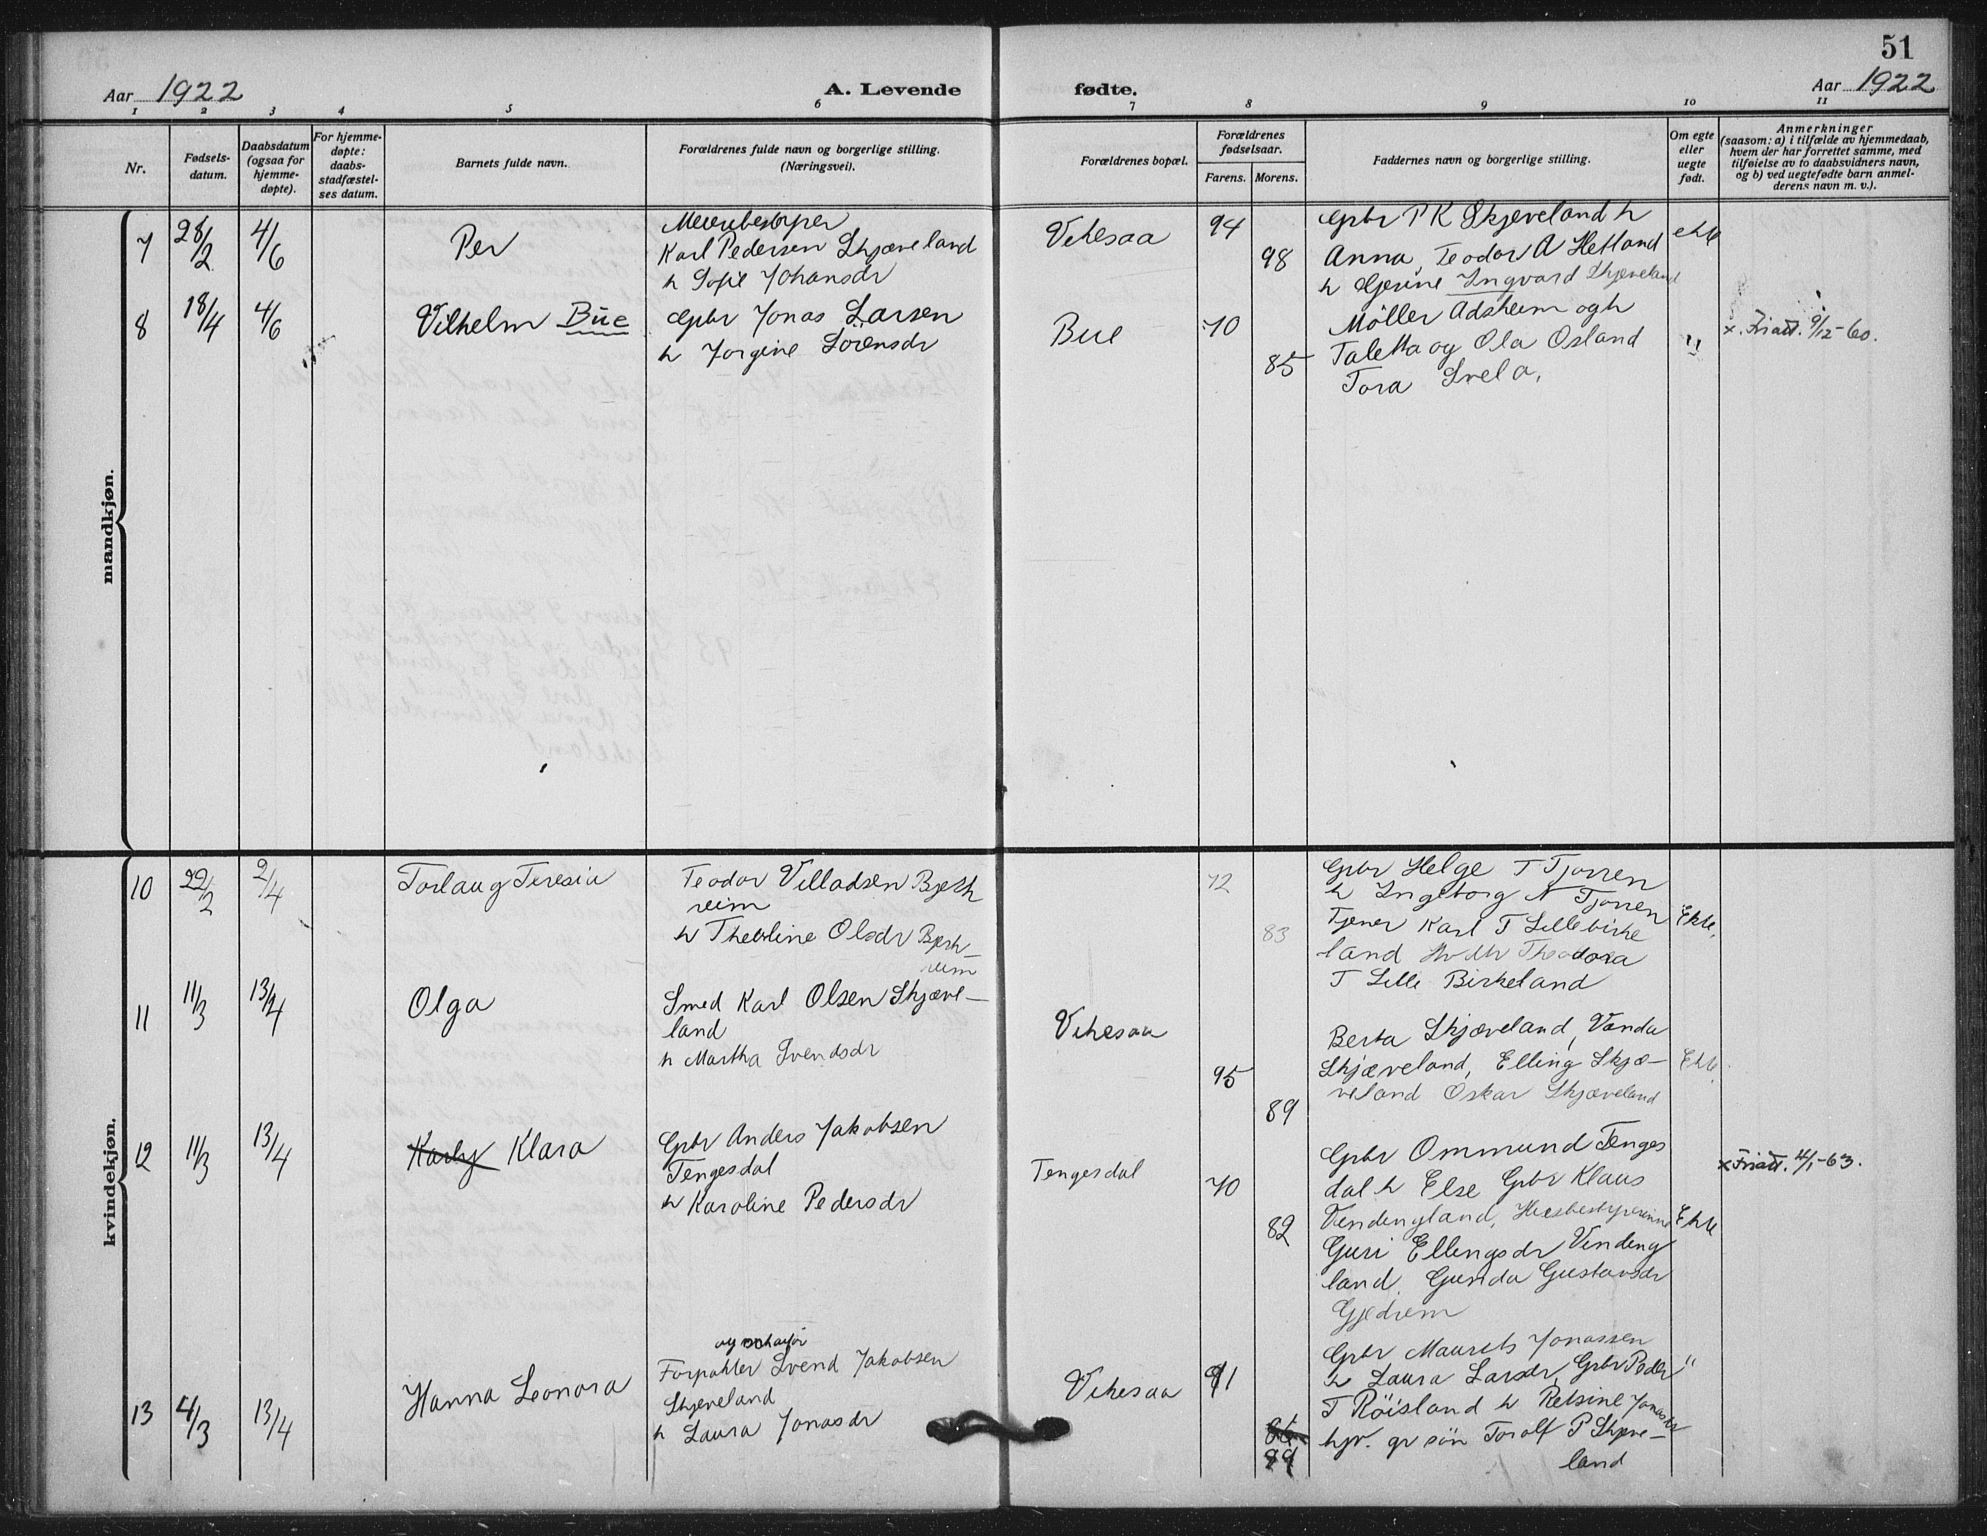 51
Aar 1922
A. Levende fødte.
Aar 1922
1 2 3 4 5 6 7 8 9 10 11
Nr.
Fødsels-
datum.
Daabsdatum
(ogsaa for
hjemme-
døpte).
For hjemme-
døpte:
daabs-
stadfæstel-
ses datum.
Barnets fulde navn.
Forældrenes fulde navn og borgerlige stilling.
(Næringsvei).
Forældrenes bopæl.
Forældrenes
fødselsaar.
Farens. Morens.
Faddernes navn og borgerlige stilling.
Om egte
eller
uegte
født.
Anmerkninger
(saasom: a) i tilfælde av hjemmedaab,
hvem der har forrettet samme, med
tilføielse av to daabsvidners navn,
og b) ved uegtefødte barn anmel-
derens navn m. v.).
mandkjøn.
7 28/2 4/6 Per
Meieribestyrer
Karl Pedersen Skjæveland
h Sofie Johansdr
Vikesaa 94 98
Gbr P K Skjæveland h
Anna, Teodor A Hetland
h Gjerine Ingvard Skjæveland
ekte
8 18/4 4/6 Vilhelm Bue
Gbr Jonas Larsen
h Jorgine Sörensdr
Bue 70 85
Möller Adsheim og h
Taletta og Ola Osland
Tora Svela.
"
x. Friatt. 9/12-60.
kvindekjøn.
10 22/2 2/4 Torlaug Teresia
Teodor Villadsen Bjerk
reim
h Theoline Olsdr Bjerk-
reim
72 83
Gbr Helge T Tjorren
h Ingeborg N Tjorren
Tjener Karl T Lillebirke
land Theodora
T Lille Birkeland
Ekte.
11 11/3 13/4 Olga
Smed Karl Olsen Skjæve-
land
h Martha Svendsdr
Vikesaa 95 89
Berta Skjæveland, Vanda
Skjæveland, Elling Skjæ-
veland Oskar Skjæveland
Ekte.
12 11/3 13/4 Karly Klara
Gbr Anders Jakobsen
Tengesdal
h Karoline Pedersdr
Tengesdal 70 82
Gbr Ommund Tenges
dal h Else Gbr Klaus
Vendengland, Husbestyrerinne
Guri Ellingsdr Vindeng
land, Gunda Gustavsdr
Gjedrem
Ekte
x Friatt. 4/1-63.
13 4/3 13/4 Hanna Leonora
og
Forpakter Svend Jakobsen
Skjæveland
h Laura Jonasdr
Vikesaa 91 89
Gbr Maurits Jonassen
h Laura Larsdr, Gbr Peder
T Röisland h Retsine Jonasdr
hjv. gr sön Torolf P Skjæve-
land
"